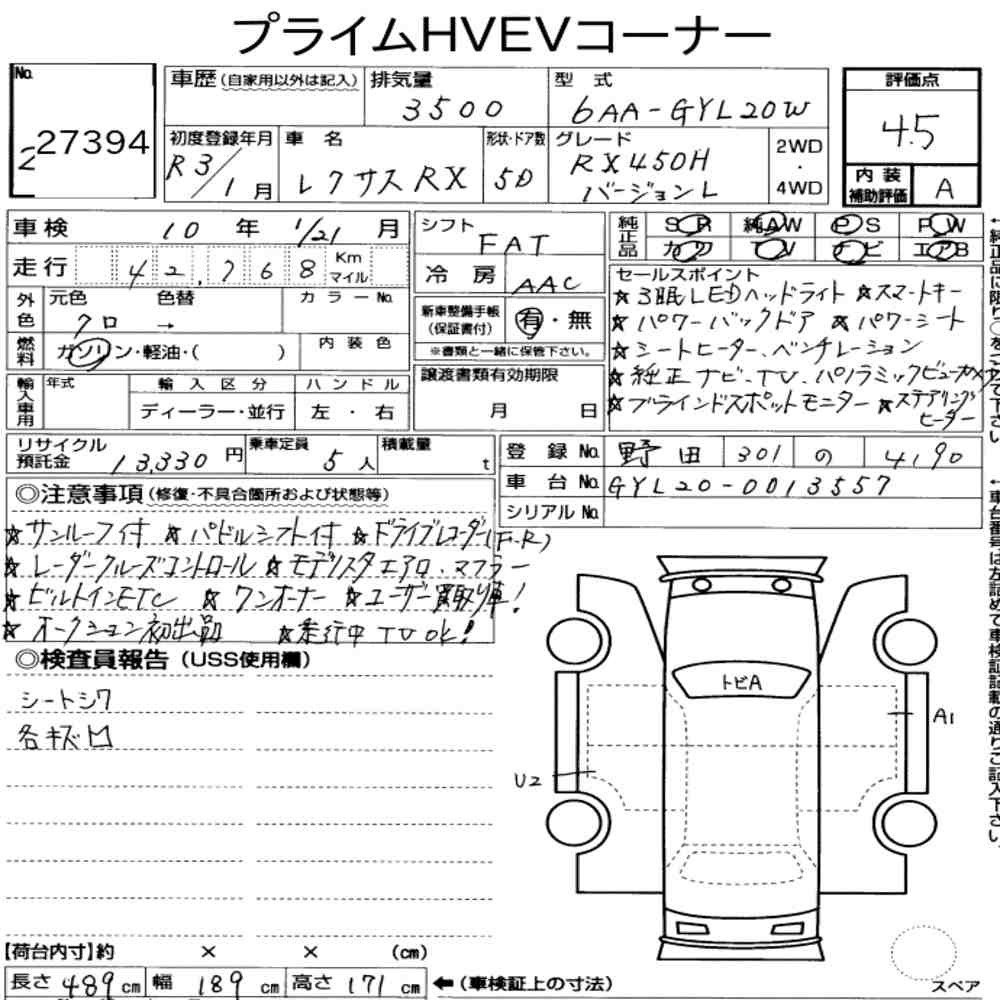 プライムHVEVコーナー
No. 227394
車歴(自家用以外は記入) 排気量 3500 型式 6AA-GYL20W
評価点 4.5
初度登録年月 R3/1月 車名 レクサスRX 形状・ドア数 5D グレード RX450H バージョンL 2WD・4WD
内装補助評価 A
車検 10年 1/21月
シフト FAT
純正品 SR 純AW PS PW
カワ TV ナビ エアB
走行 42,768 Km マイル
冷房 AAC
セールスポイント
★3眼LEDヘッドライト ★スマートキー
★パワーバックドア ★パワーシート
★シートヒーター、ベンチレーション
★純正ナビ、TV、パノラミックビューカメラ
★ブラインドスポットモニター ★ステアリングヒーター
外色 元色 クロ 色替 → カラーNo.
新車整備手帳(保証書付) 有・無
※書類と一緒に保管下さい。
燃料 ガソリン・軽油・( ) 内装色
譲渡書類有効期限
月 日
輸入車用 年式 輸入区分 ハンドル
ディーラー・並行 左・右
リサイクル預託金 13,330円 乗車定員 5人 積載量 t
登録No. 野田 301 の 4190
車台No. GYL20-0013557
シリアルNo.
◎注意事項(修復・不具合箇所および状態等)
★サンルーフ付 ★パドルシフト付 ★ドライブレコーダー(F・R)
★レーダークルーズコントロール ★モデリスタエアロ・マフラー
★ビルトインETC ★ワンオーナー ★ユーザー買取り車!
★オークション初出品 ★走行中TVOK!
◎検査員報告(USS使用欄)
シートシワ
各キズ凹
トビA
A1
U2
【荷台内寸】約 × × (cm)
長さ 489 cm 幅 189 cm 高さ 171 cm ←(車検証上の寸法)
スペア
←車台番号は左詰めで車検証記載の通りご記入下さい。